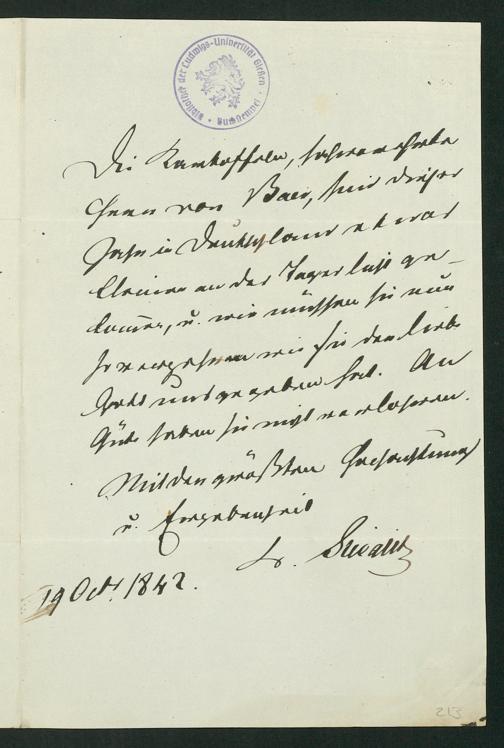 Bibliothek der Ludwigs-Universität Gießen
Die Kartoffeln, hochverehrter
Herr von Baer, sind dieses
Jahr in Deutschland etwas
kleiner an das Tageslicht ge-
kommen, u. wir müssen sie nun
so verzehren wie sie der liebe
Gott uns gegeben hat. An
Güte haben sie nicht verloren.
Mit der größten Hochachtung
u. Ergebenheit
19 Oct. 1842.
213